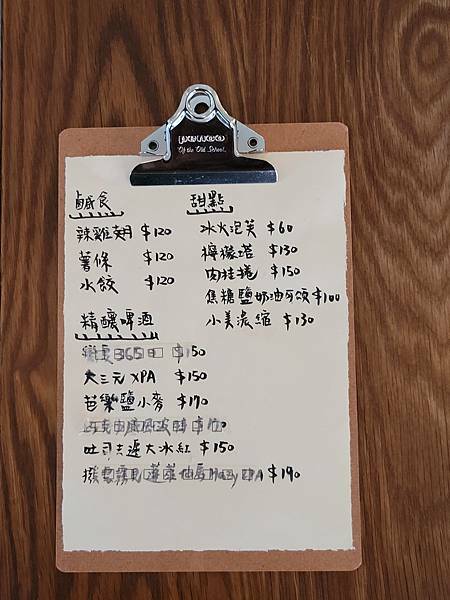 Of the Old School.
鹹食
辣雞翅 $120
薯條 $120
水餃 $120
甜點
冰火泡芙 $60
檸檬塔 $130
肉桂捲 $150
焦糖鹽奶油可頌 $100
小美濃縮 $130
精釀啤酒
365 $150
大三元 XPA $150
芭樂鹽小麥 $170
吐司去邊大冰紅 $150
Hazy IPA $190